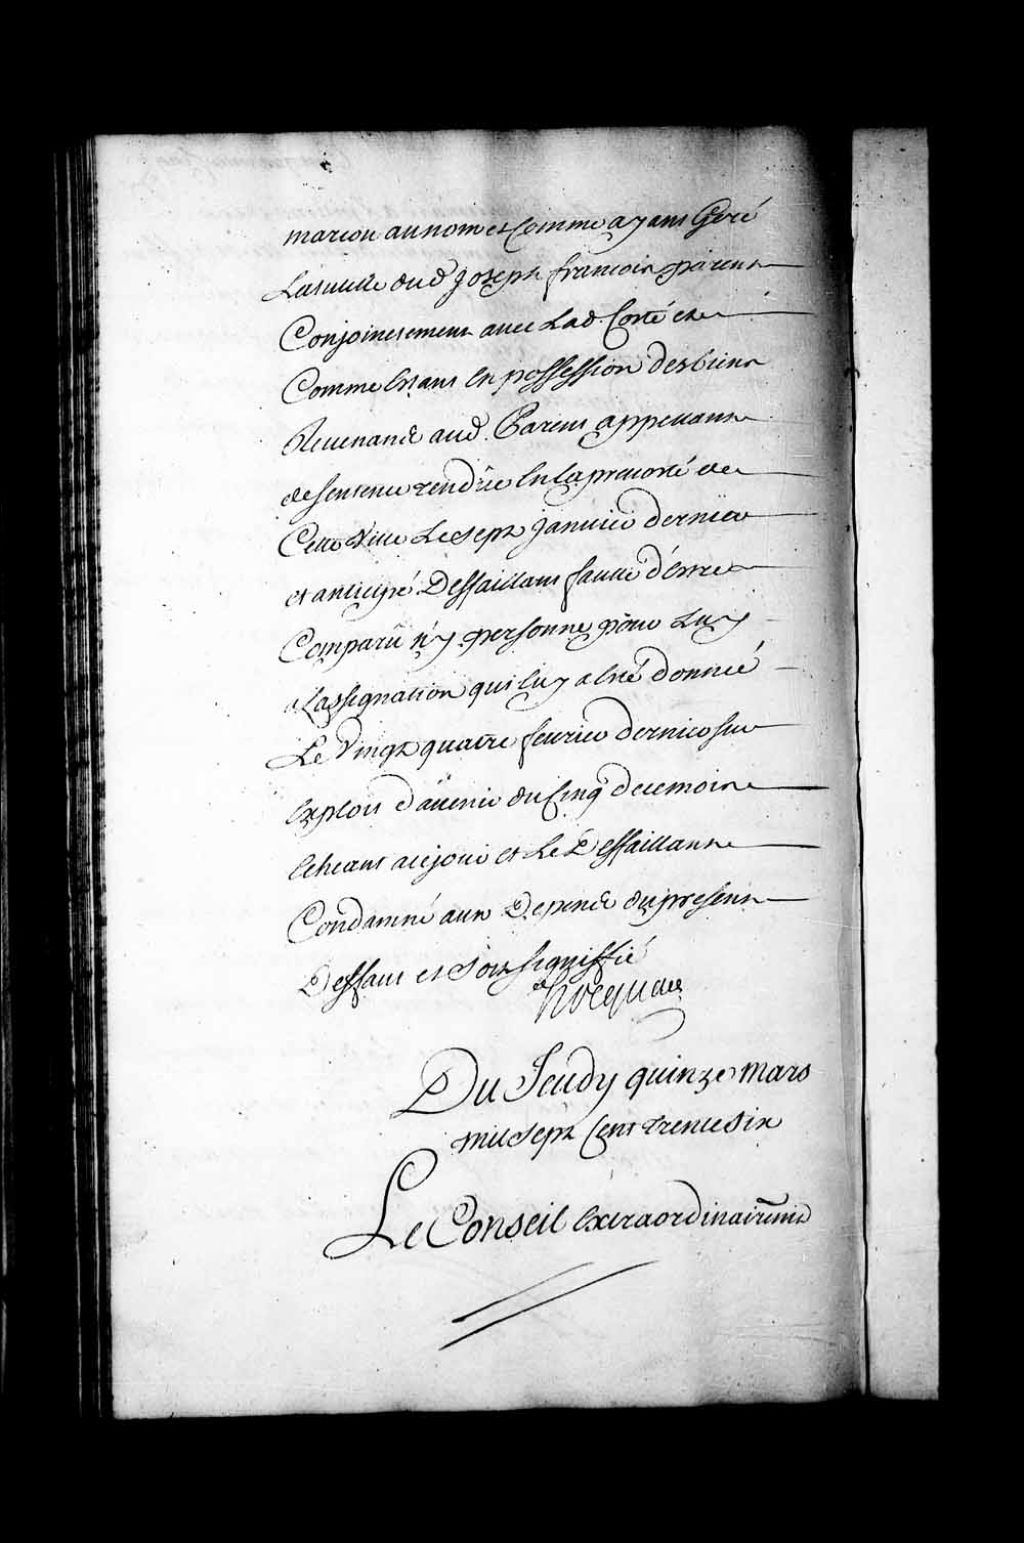 marion au nom et Comme ayant Geré
La tutelle dud Joseph francois parent
Conjointement avec Lad. Corté et
Comme Etant En possession des biens
Revenans aud. Parent appellant
de sentence rendüe En La prevoté de
Cette Ville Le sept Janvier dernier
et anticipé Deffaillant faute d'estre
Comparu n'y personne pour Luy
a Lassignation qui luy a Eté donnée
Le Vingt quatre fevrier dernier sur
Exploit d'avenir du Cinq de ce mois
Echeant a ce jour et Le Deffaillant
Condamné aux Depends du present
Deffaut et soit signiffié
hocquart
Du Jeudy quinze mars
mil sept Cent trente six
Le Conseil Extraordinairemt